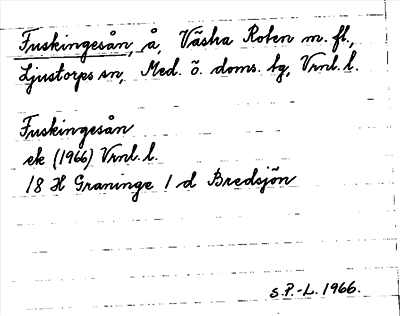 Fuskingesån, å, Västra Roten m. fl.,
Ljustorps sn, Med. ö. doms. tg, Vrnl. l.
Fuskingesån
ek (1966) Vrnl. l.
18 H Graninge 1 d Bredsjön
S.P.-L. 1966.